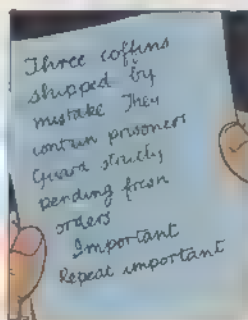 Three coffins
shipped by
mistake They
contain prisoners
Guard strictly
pending fresh
orders
Important
Repeat important